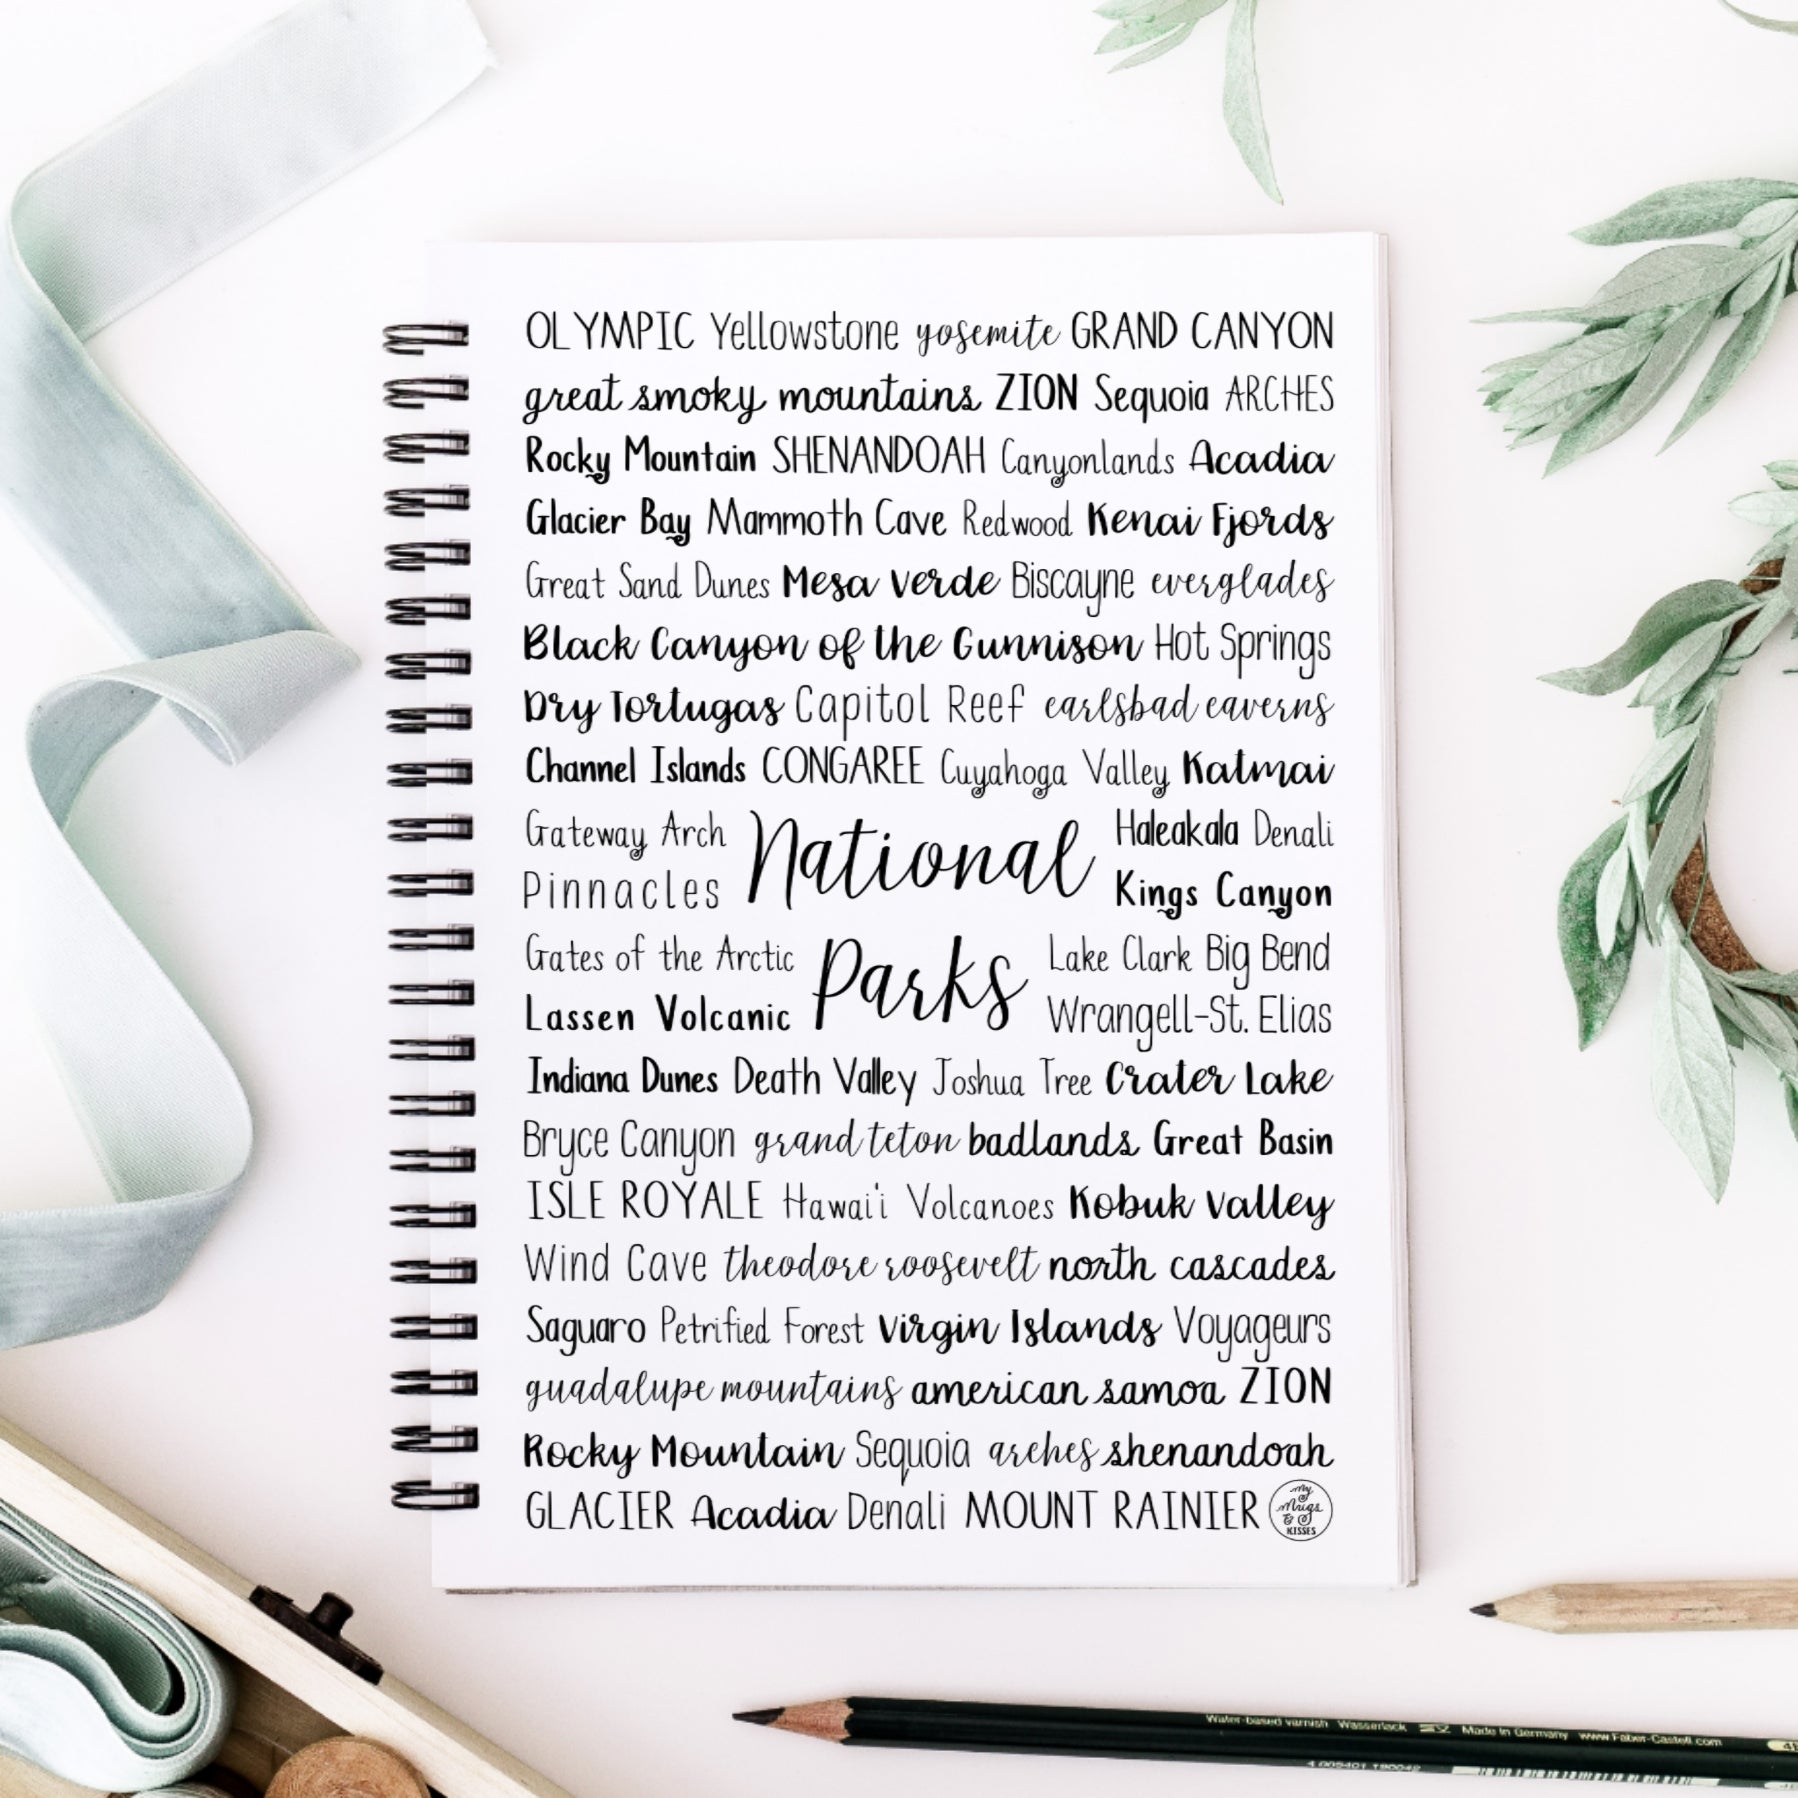 OLYMPIC Yellowstone yosemite GRAND CANYON
great smoky mountains ZION Sequoia ARCHES
Rocky Mountain SHENANDOAH Canyonlands Acadia
Glacier Bay Mammoth Cave Redwood Kenai Fjords
Great Sand Dunes Mesa Verde Biscayne everglades
Black Canyon of the Gunnison Hot Springs
Dry Tortugas Capitol Reef carlsbad caverns
Channel Islands CONGAREE Cuyahoga Valley Katmai
Gateway Arch
Pinnacles
National
Haleakala Denali
Kings Canyon
Gates of the Arctic
Lassen Volcanic
Parks
Lake Clark Big Bend
Wrangell-St. Elias
Indiana Dunes Death Valley Joshua Tree Crater Lake
Bryce Canyon grand teton badlands Great Basin
ISLE ROYALE Hawai'i Volcanoes Kobuk Valley
Wind Cave theodore roosevelt north cascades
Saguaro Petrified Forest Virgin Islands Voyageurs
guadalupe mountains american samoa ZION
Rocky Mountain Sequoia arches shenandoah
GLACIER Acadia Denali MOUNT RAINIER
My
Mugs
&
KISSES
Water-based varnish Wasserlack Made in Germany www.Faber-Castell.com
4 005401 190042